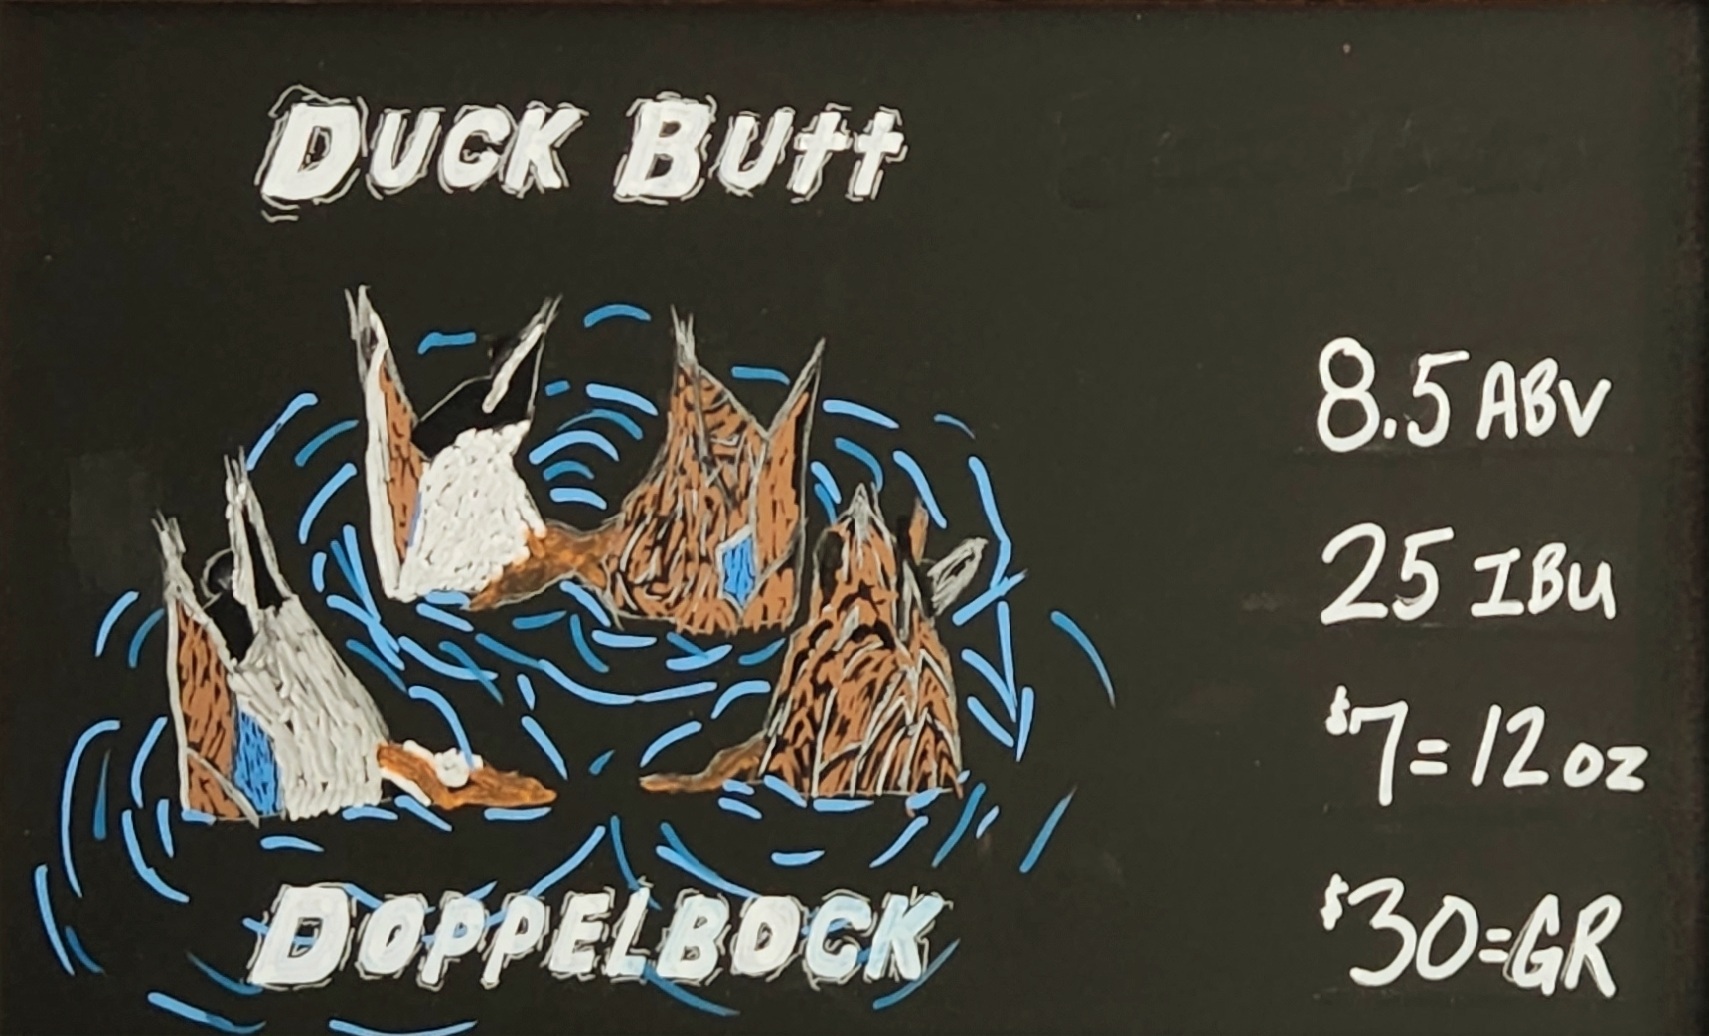 Duck Butt
8.5 ABV
25 IBU
$7=12oz
$30=GR
Doppelbock